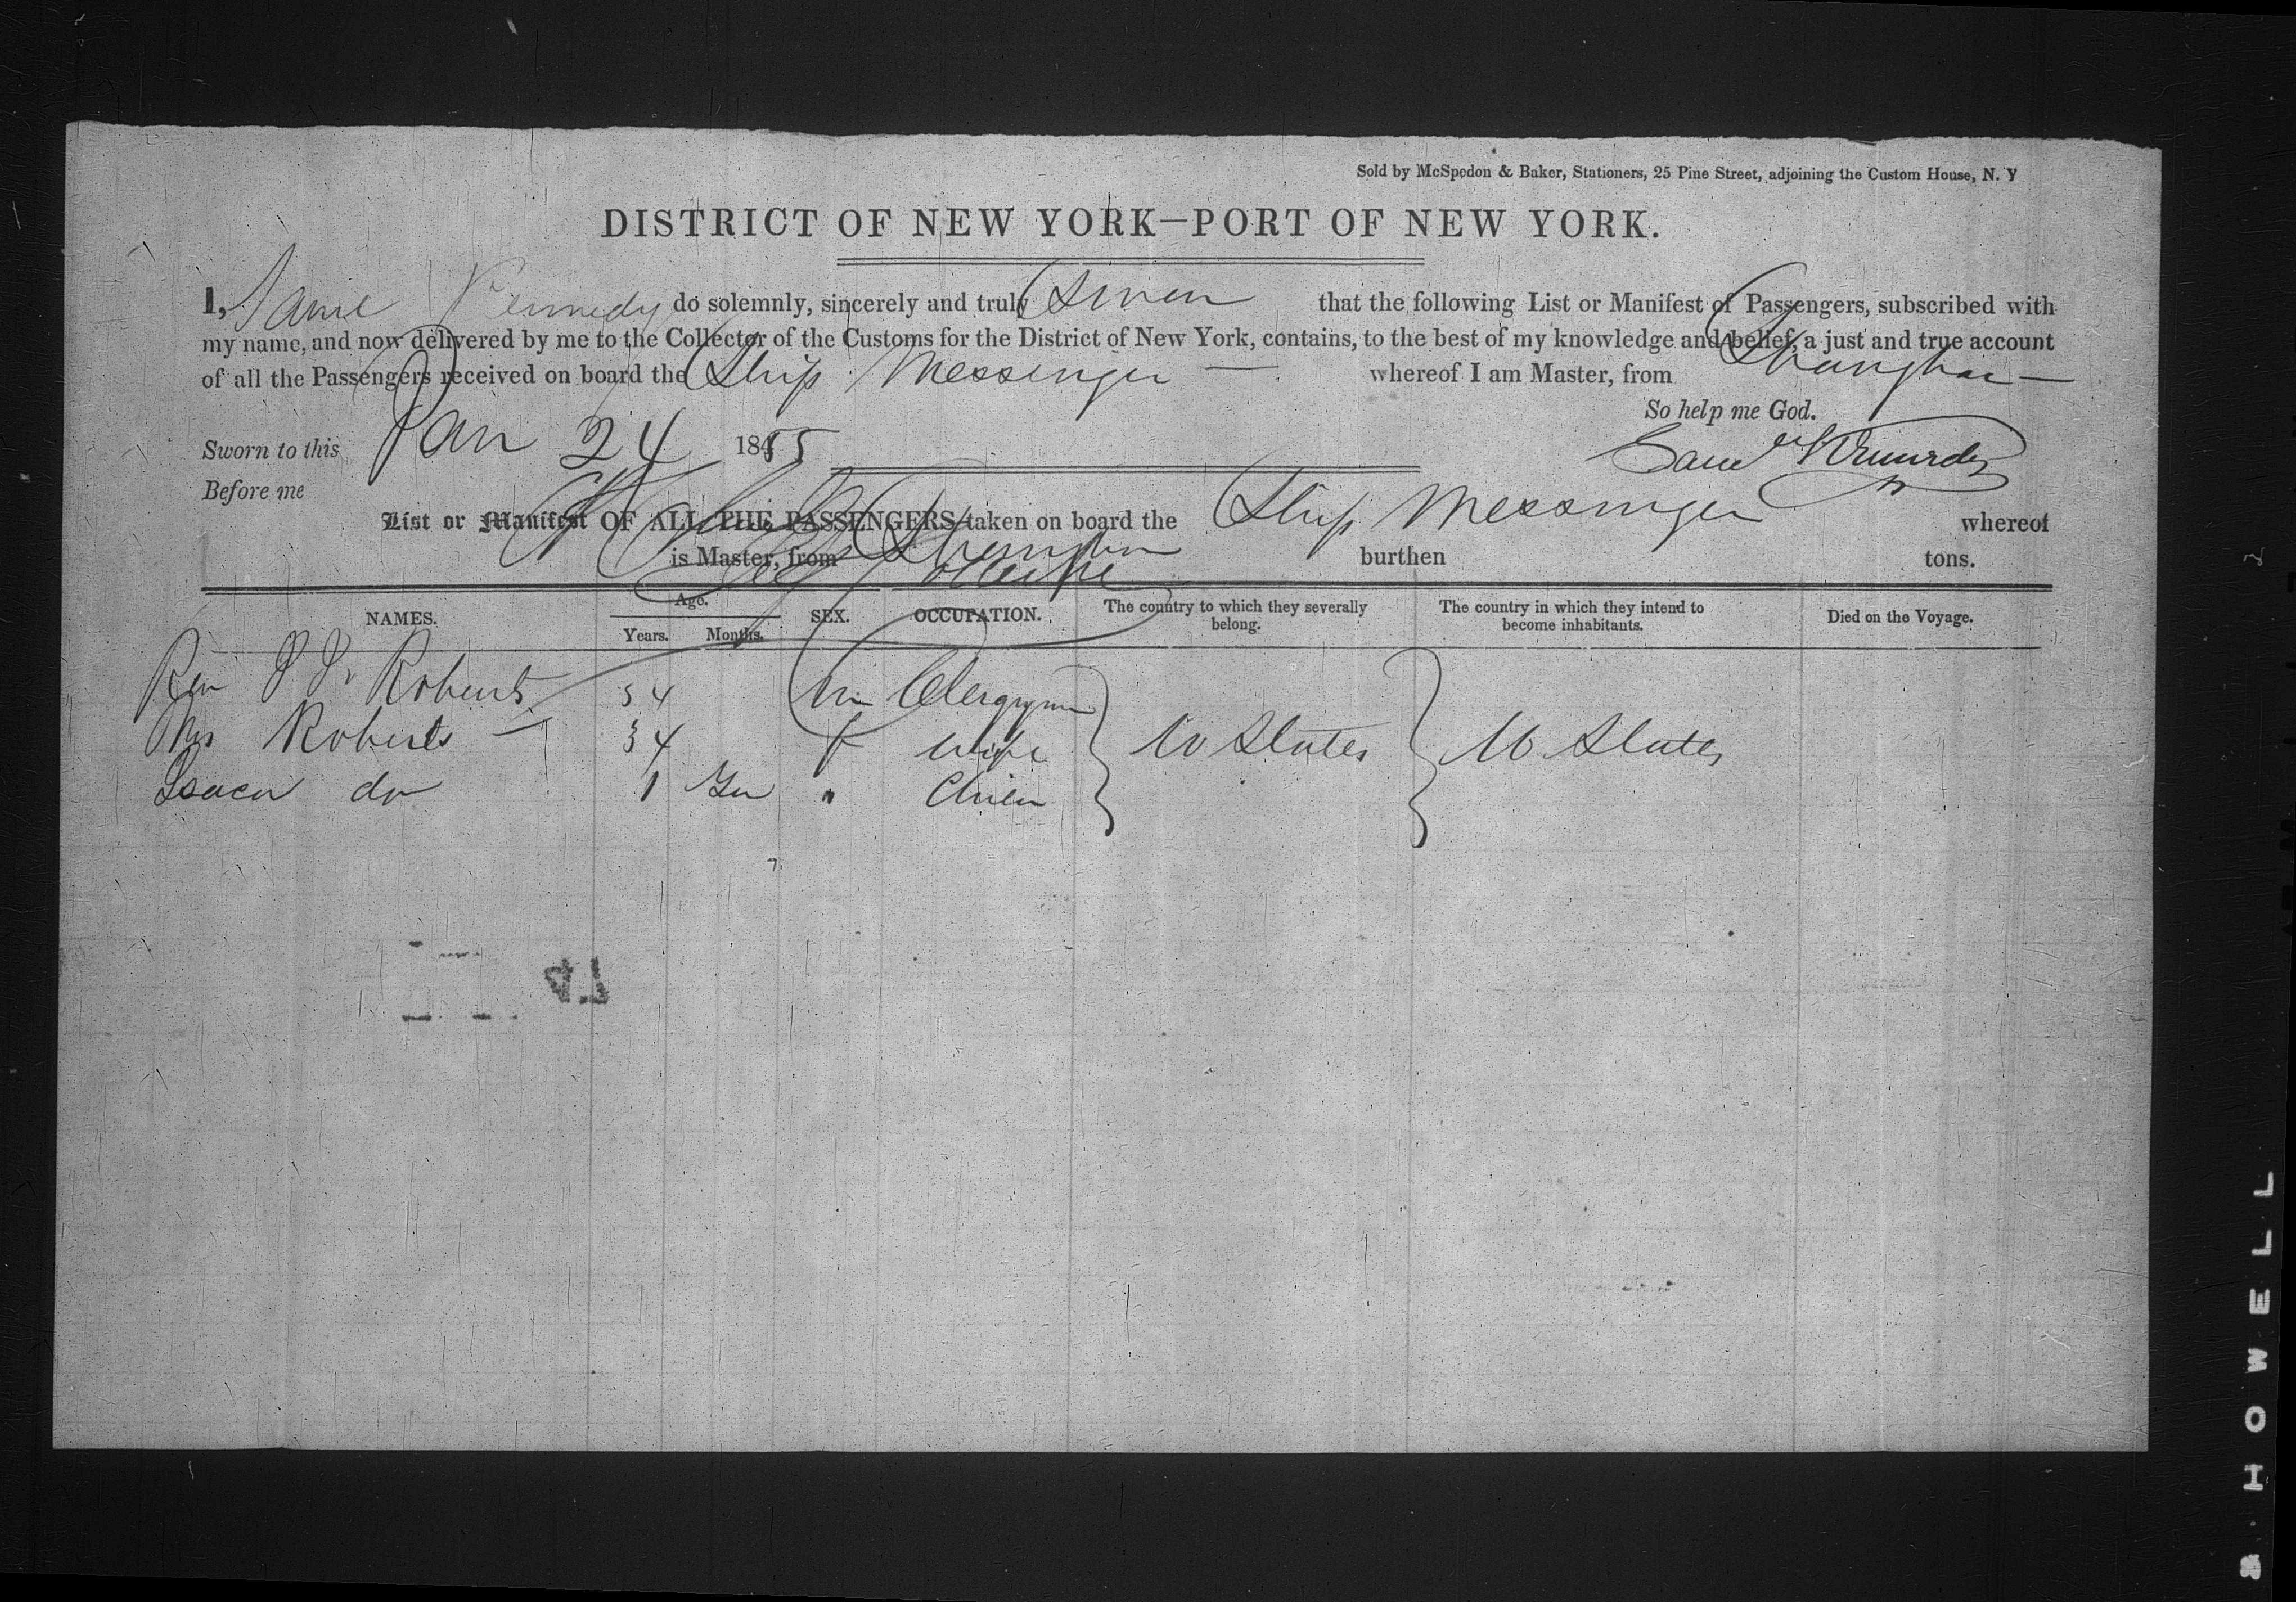 Sold by McSpedon & Baker, Stationers, 25 Pine Street, adjoining the Custom House, N. Y
DISTRICT OF NEW YORK—PORT OF NEW YORK.
I, Saml Kennedy do solemnly, sincerely and truly Swear that the following List or Manifest of Passengers, subscribed with
my name, and now delivered by me to the Collector of the Customs for the District of New York, contains, to the best of my knowledge and belief, a just and true account
of all the Passengers received on board the Ship Messenger — whereof I am Master, from Shanghai —
So help me God.
Sworn to this Jan 24 1855
Saml Kennedy
Before me
List or Manifest OF ALL THE PASSENGERS taken on board the Ship Messenger whereof
is Master, from Shanghai burthen tons.
NAMES. Age. Years. Months. SEX. OCCUPATION. The country to which they severally belong. The country in which they intend to become inhabitants. Died on the Voyage.
Rev Roberts 34 m Clergyman
Mrs Roberts 34 f wife U States U States
do 1 "
B. HOWELL